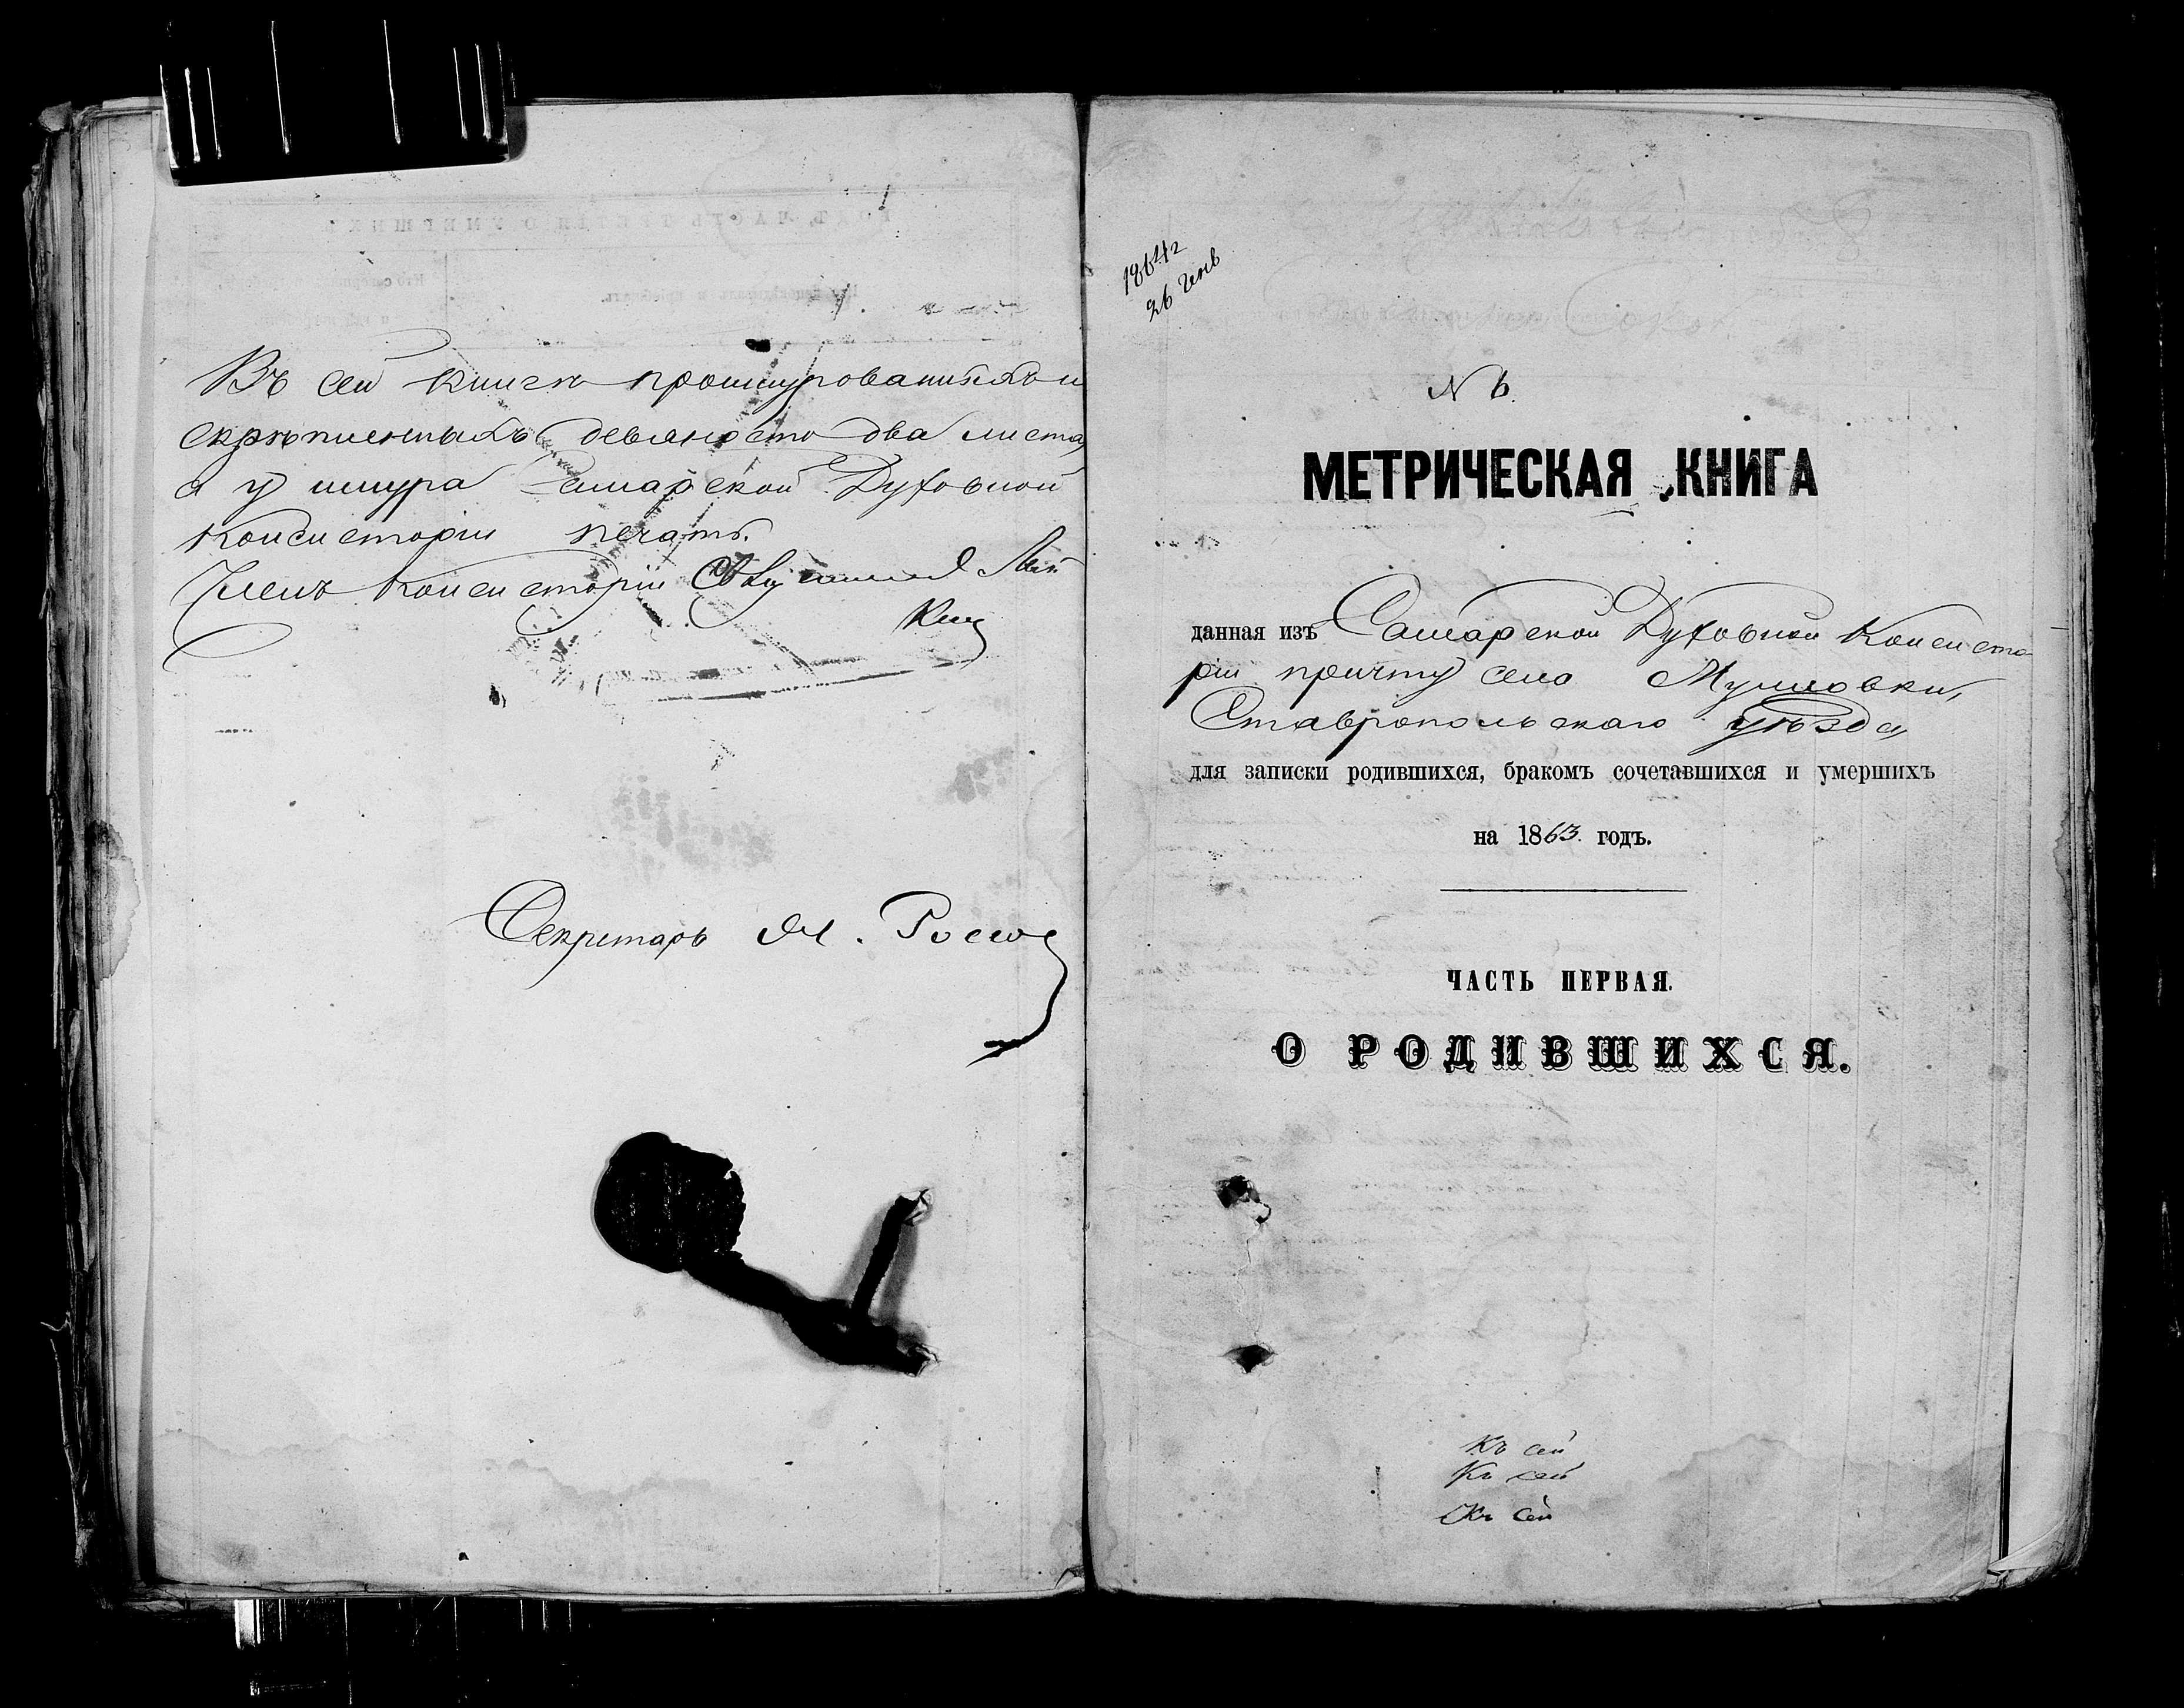 Въ сей книгѣ прошнурованныхъ и
скрѣпленныхъ девяносто два листа,
а у шнура Самарской Духовной
Консисторіи печать.
Членъ Консисторіи
Секретарь
1864 г
26 Генв
№ 6.
МЕТРИЧЕСКАЯ КНИГА
данная изъ Самарской Духовной Консисто-
ріи причту села Мулловки,
Ставропольскаго уѣзда,
для записки родившихся, бракомъ сочетавшихся и умершихъ
на 1863. годъ.
ЧАСТЬ ПЕРВАЯ.
О РОДИВШИХСЯ.
Къ сей
Къ сей
Къ сей